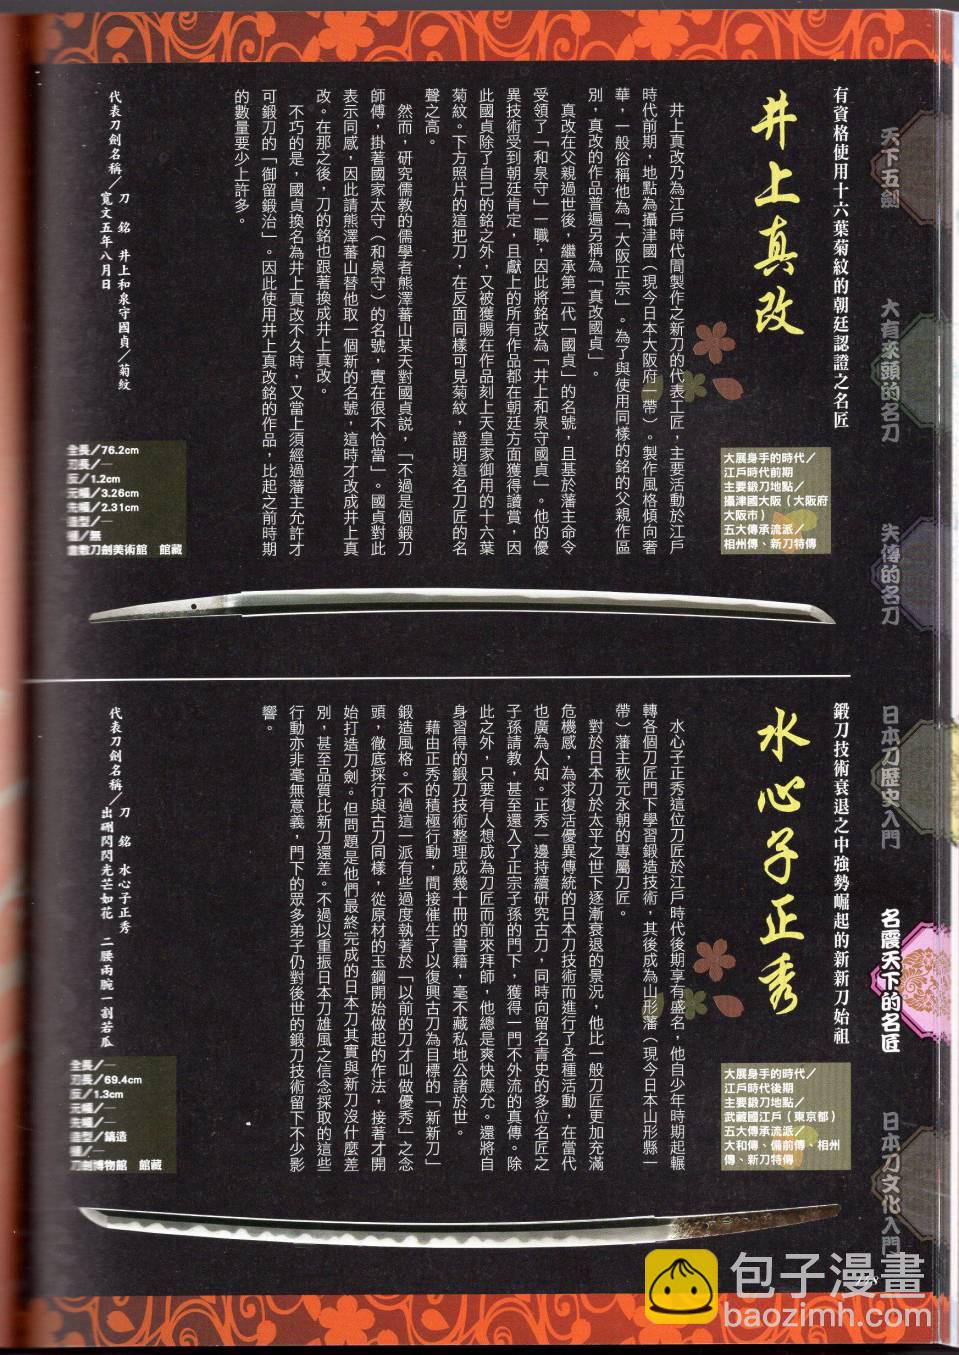 天下五劍
大有來頭的名刀
失傳的名刀
日本刀歷史入門
名震天下的名匠
日本刀文化入門
有資格使用十六葉菊紋的朝廷認證之名匠
井上真改
大展身手的時代／
江戶時代前期
主要鍛刀地點／
攝津國大阪（大阪府
大阪市）
五大傳承流派／
相州傳、新刀特傳
井上真改乃為江戶時代間製作之新刀的代表工匠，主要活動於江戶
時代前期，地點為攝津國（現今日本大阪府一帶）。製作風格傾向奢
華，一般俗稱他為「大阪正宗」。為了與使用同樣的銘的父親作區
別，真改的作品普遍另稱為「真改國貞」。
真改在父親過世後，繼承第二代「國貞」的名號，且基於藩主命令
受領了「和泉守」一職，因此將銘改為「井上和泉守國貞」。他的優
異技術受到朝廷肯定，且獻上的所有作品都在朝廷方面獲得讚賞，因
此國貞除了自己的銘之外，又被獲賜在作品刻上天皇家御用的十六葉
菊紋。下方照片的這把刀，在反面同樣可見菊紋，證明這名刀匠的名
聲之高。
然而，研究儒教的儒學者熊澤蕃山某天對國貞說，「不過是個鍛刀
師傅，掛著國家太守（和泉守）的名號，實在很不恰當」。國貞對此
表示同感，因此請熊澤蕃山替他取一個新的名號，這時才改成井上真
改。在那之後，刀的銘也跟著換成井上真改。
不巧的是，國貞換名為井上真改不久時，又當上須經過藩主允許才
可鍛刀的「御留鍛治」。因此使用井上真改銘的作品，比起之前時期
的數量要少上許多。
代表刀劍名稱／刀　銘　井上和泉守國貞／菊紋
寬文五年八月日
全長／76.2cm
刃長／—
反／1.2cm
元幅／3.26cm
先幅／2.31cm
造型／—
種／無
刀劍美術館　館藏
鍛刀技術衰退之中強勢崛起的新新刀始祖
水心子正秀
大展身手的時代／
江戶時代後期
主要鍛刀地點／
武藏國江戶（東京都）
五大傳承流派／
大和傳、備前傳、相州
傳、新刀特傳
水心子正秀這位刀匠於江戶時代後期享有盛名，他自少年時期起輾
轉各個刀匠門下學習鍛造技術，其後成為山形藩（現今日本山形縣一
帶）藩主秋元永朝的專屬刀匠。
對於日本刀於太平之世下逐漸衰退的景況，他比一般刀匠更加充滿
危機感，為求復活優異傳統的日本刀技術而進行了各種活動，在當代
也廣為人知。正秀一邊持續研究古刀，同時向留名青史的多位名匠之
子孫請教，甚至還入了正宗子孫的門下，獲得一門不外流的真傳。除
此之外，只要有人想成為刀匠而前來拜師，他總是爽快應允。還將自
身習得的鍛刀技術整理成幾十冊的書籍，毫不藏私地公諸於世。
藉由正秀的積極行動，間接催生了以復興古刀為目標的「新新刀」
鍛造風格。不過這一派有些過度執著於「以前的刀才叫做優秀」之念
頭，徹底採行與古刀同樣，從原材的玉鋼開始做起的作法，接著才開
始打造刀劍。但問題是他們最終完成的日本刀其實與新刀沒什麼差
別，甚至品質比新刀還差。不過以重振日本刀雄風之信念採取的這些
行動亦非毫無意義，門下的眾多弟子仍對後世的鍛刀技術留下不少影
響。
代表刀劍名稱／刀　銘　水心子正秀
出硎閃閃光芒如花　二腰兩腕一割若瓜
全長／—
刃長／69.4cm
反／1.3cm
元幅／—
先幅／—
造型／鎬造
種／—
刀劍博物館　館藏
148
包子漫畫
baozimh.com